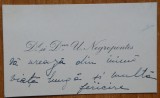 D-l și D-na U. Negropontes
vă urează din inimă
viață lungă și multă
fericire